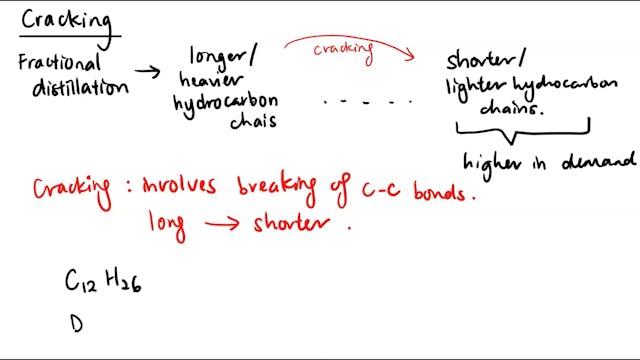 Cracking
Fractional distillation → longer/ heavier hydrocarbon chais
cracking
..... shorter/ lighter hydrocarbon chains.
higher in demand
Cracking : involves breaking of C-C bonds.
long → shorter .
C₁₂ H₂₆
D